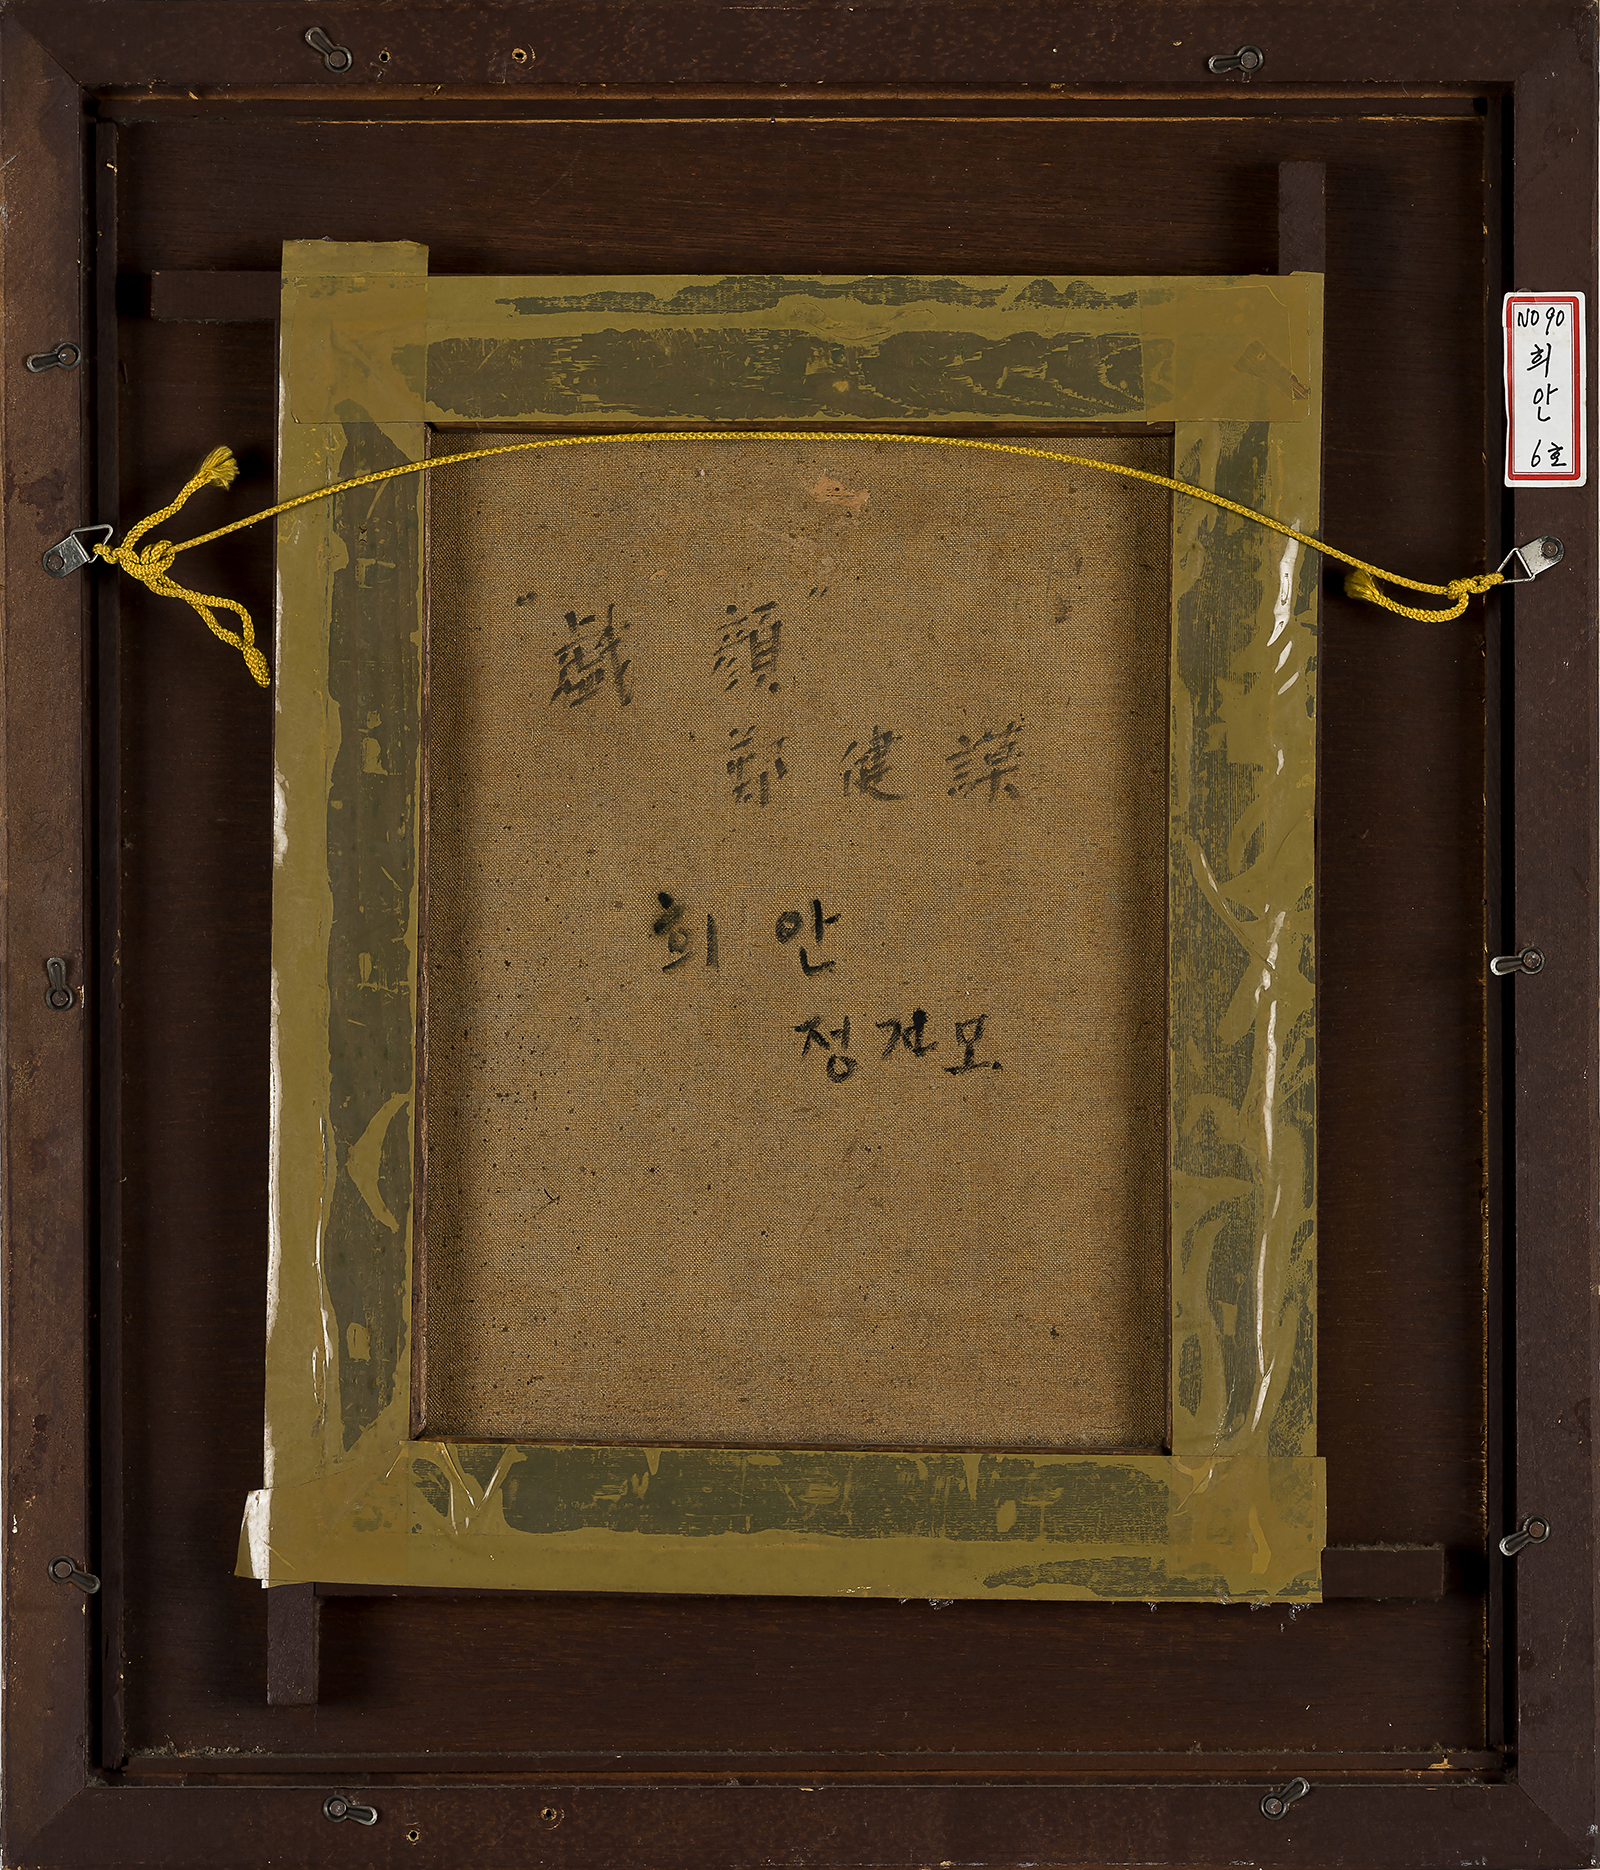 "戱 顔"
鄭 健 謨
희 안
정 건 모
NO 90
희
안
6호